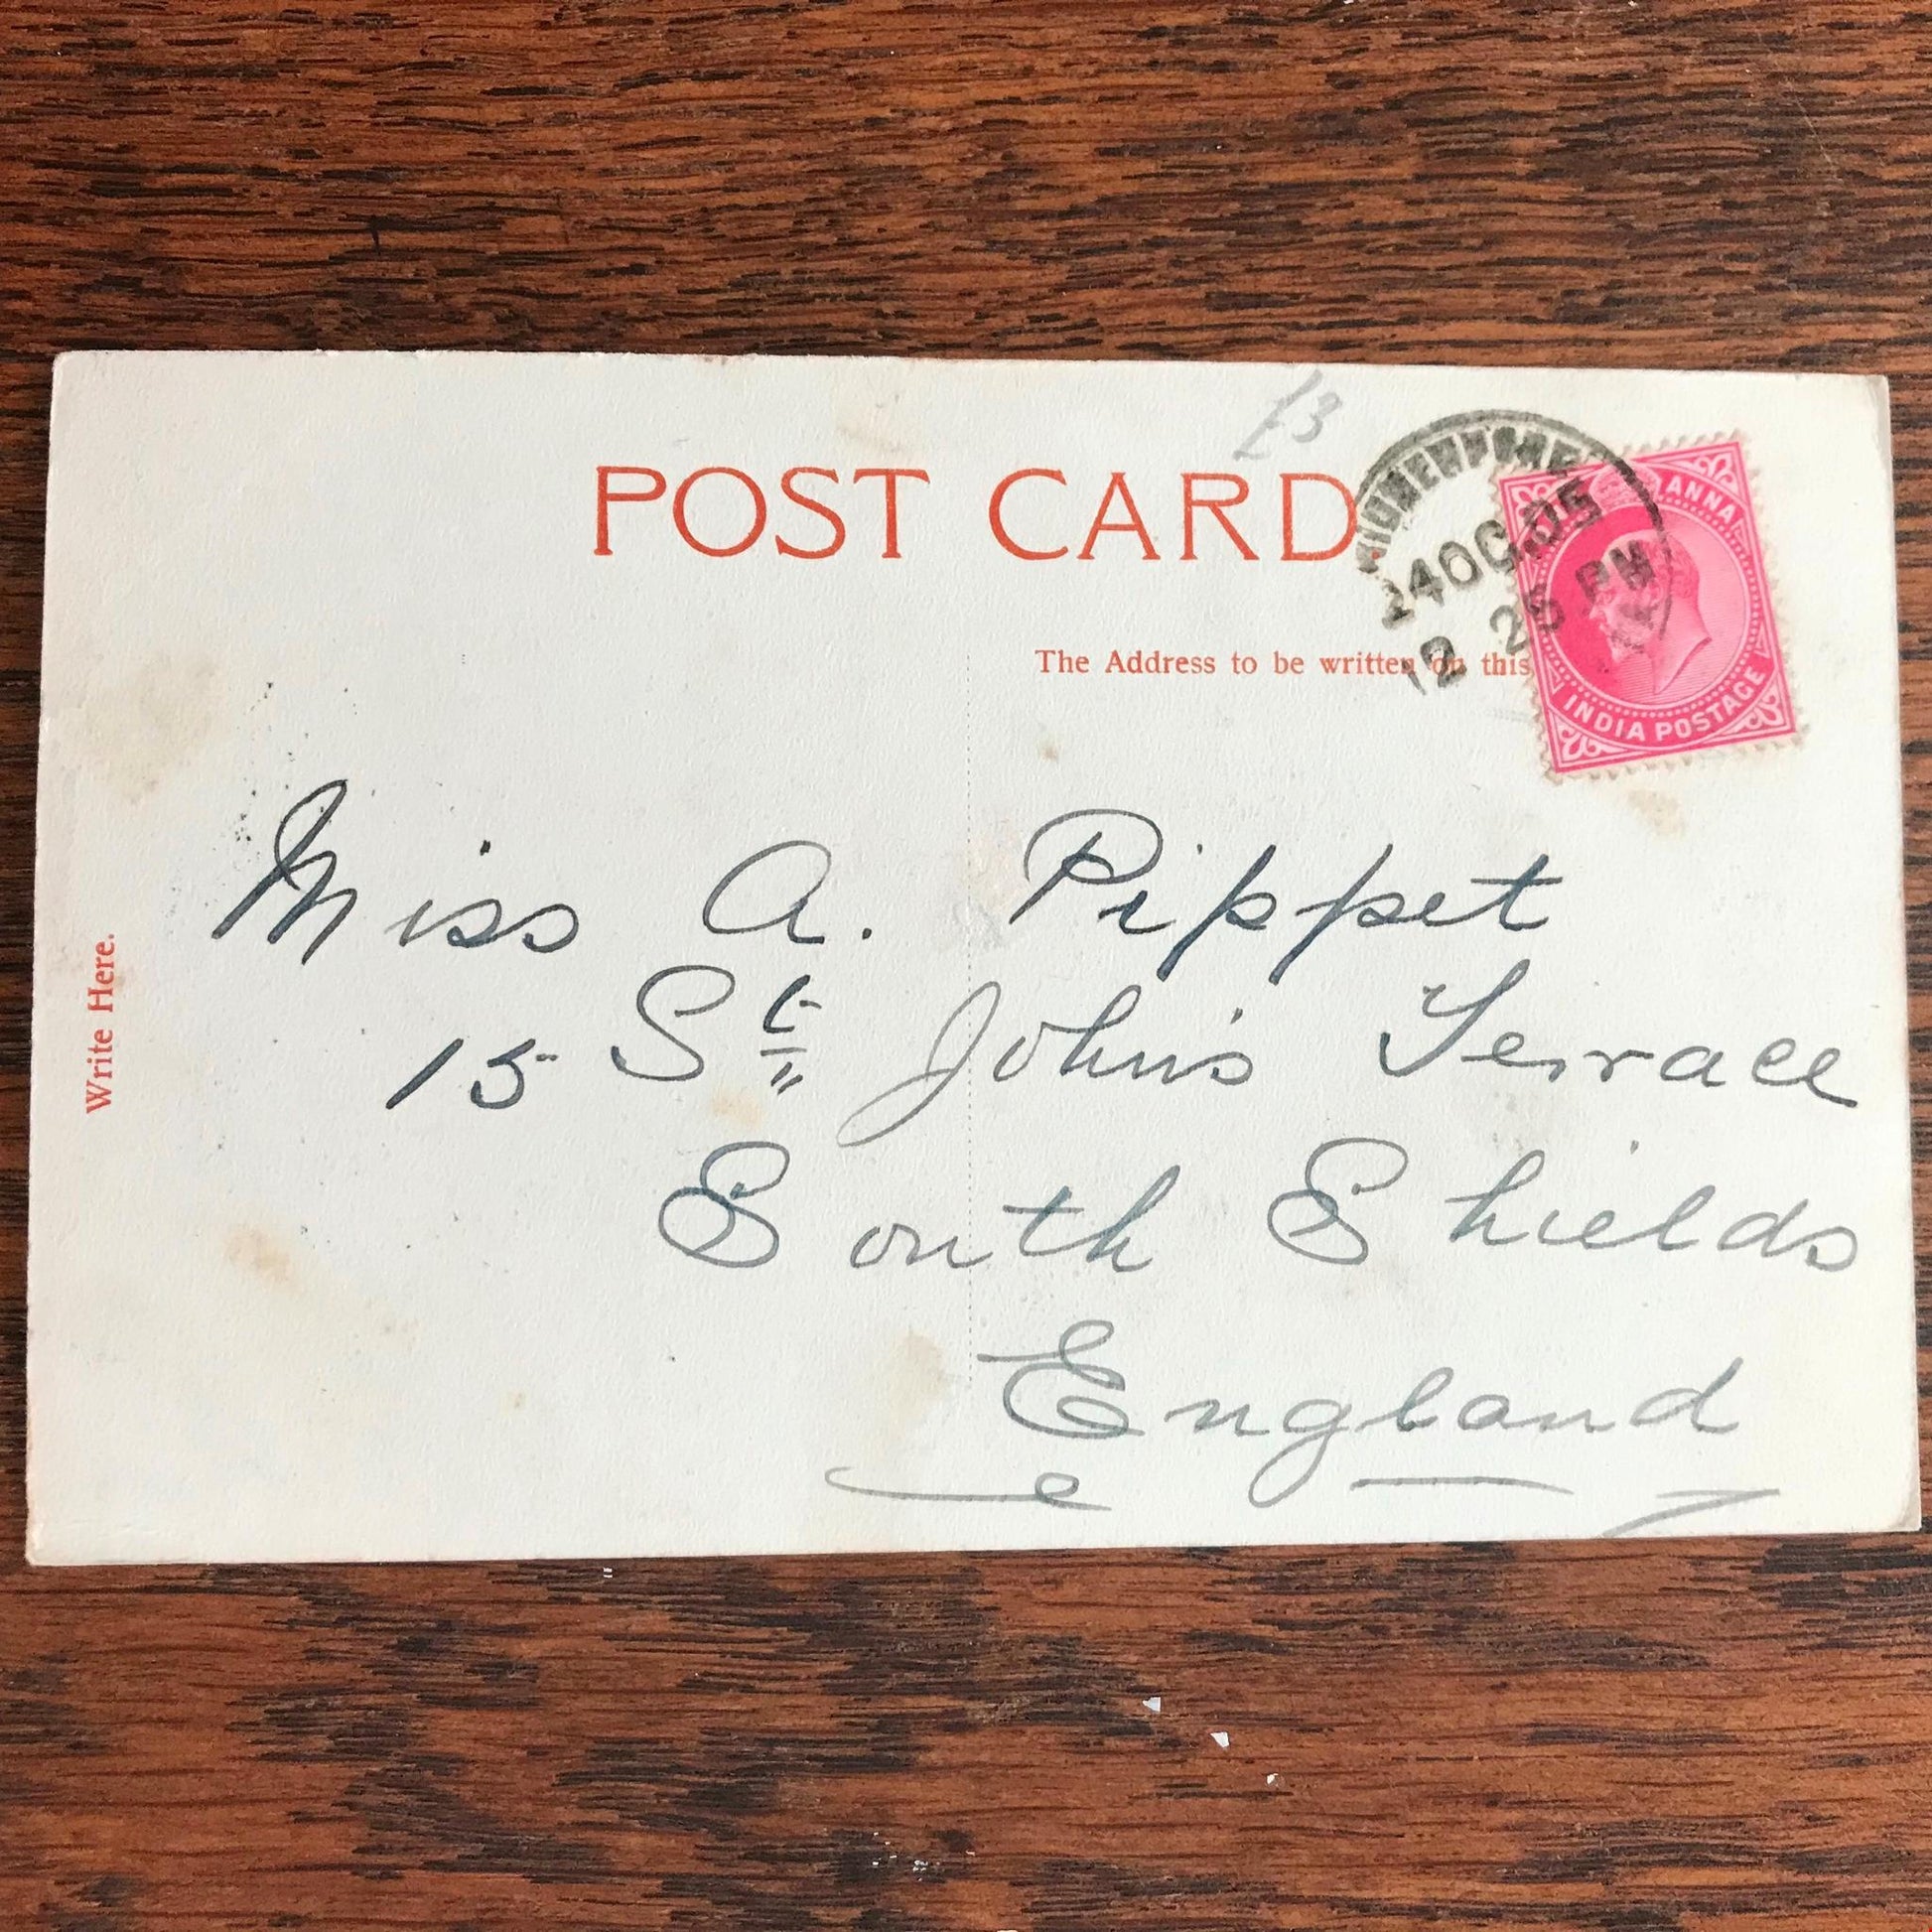 £3
POST CARD.
24 OC. 05
12 25 PM
ANNA
INDIA POSTAGE
The Address to be written on this
Write Here.
Miss A. Pippet
15 St Johns Terrace
South Shields
England